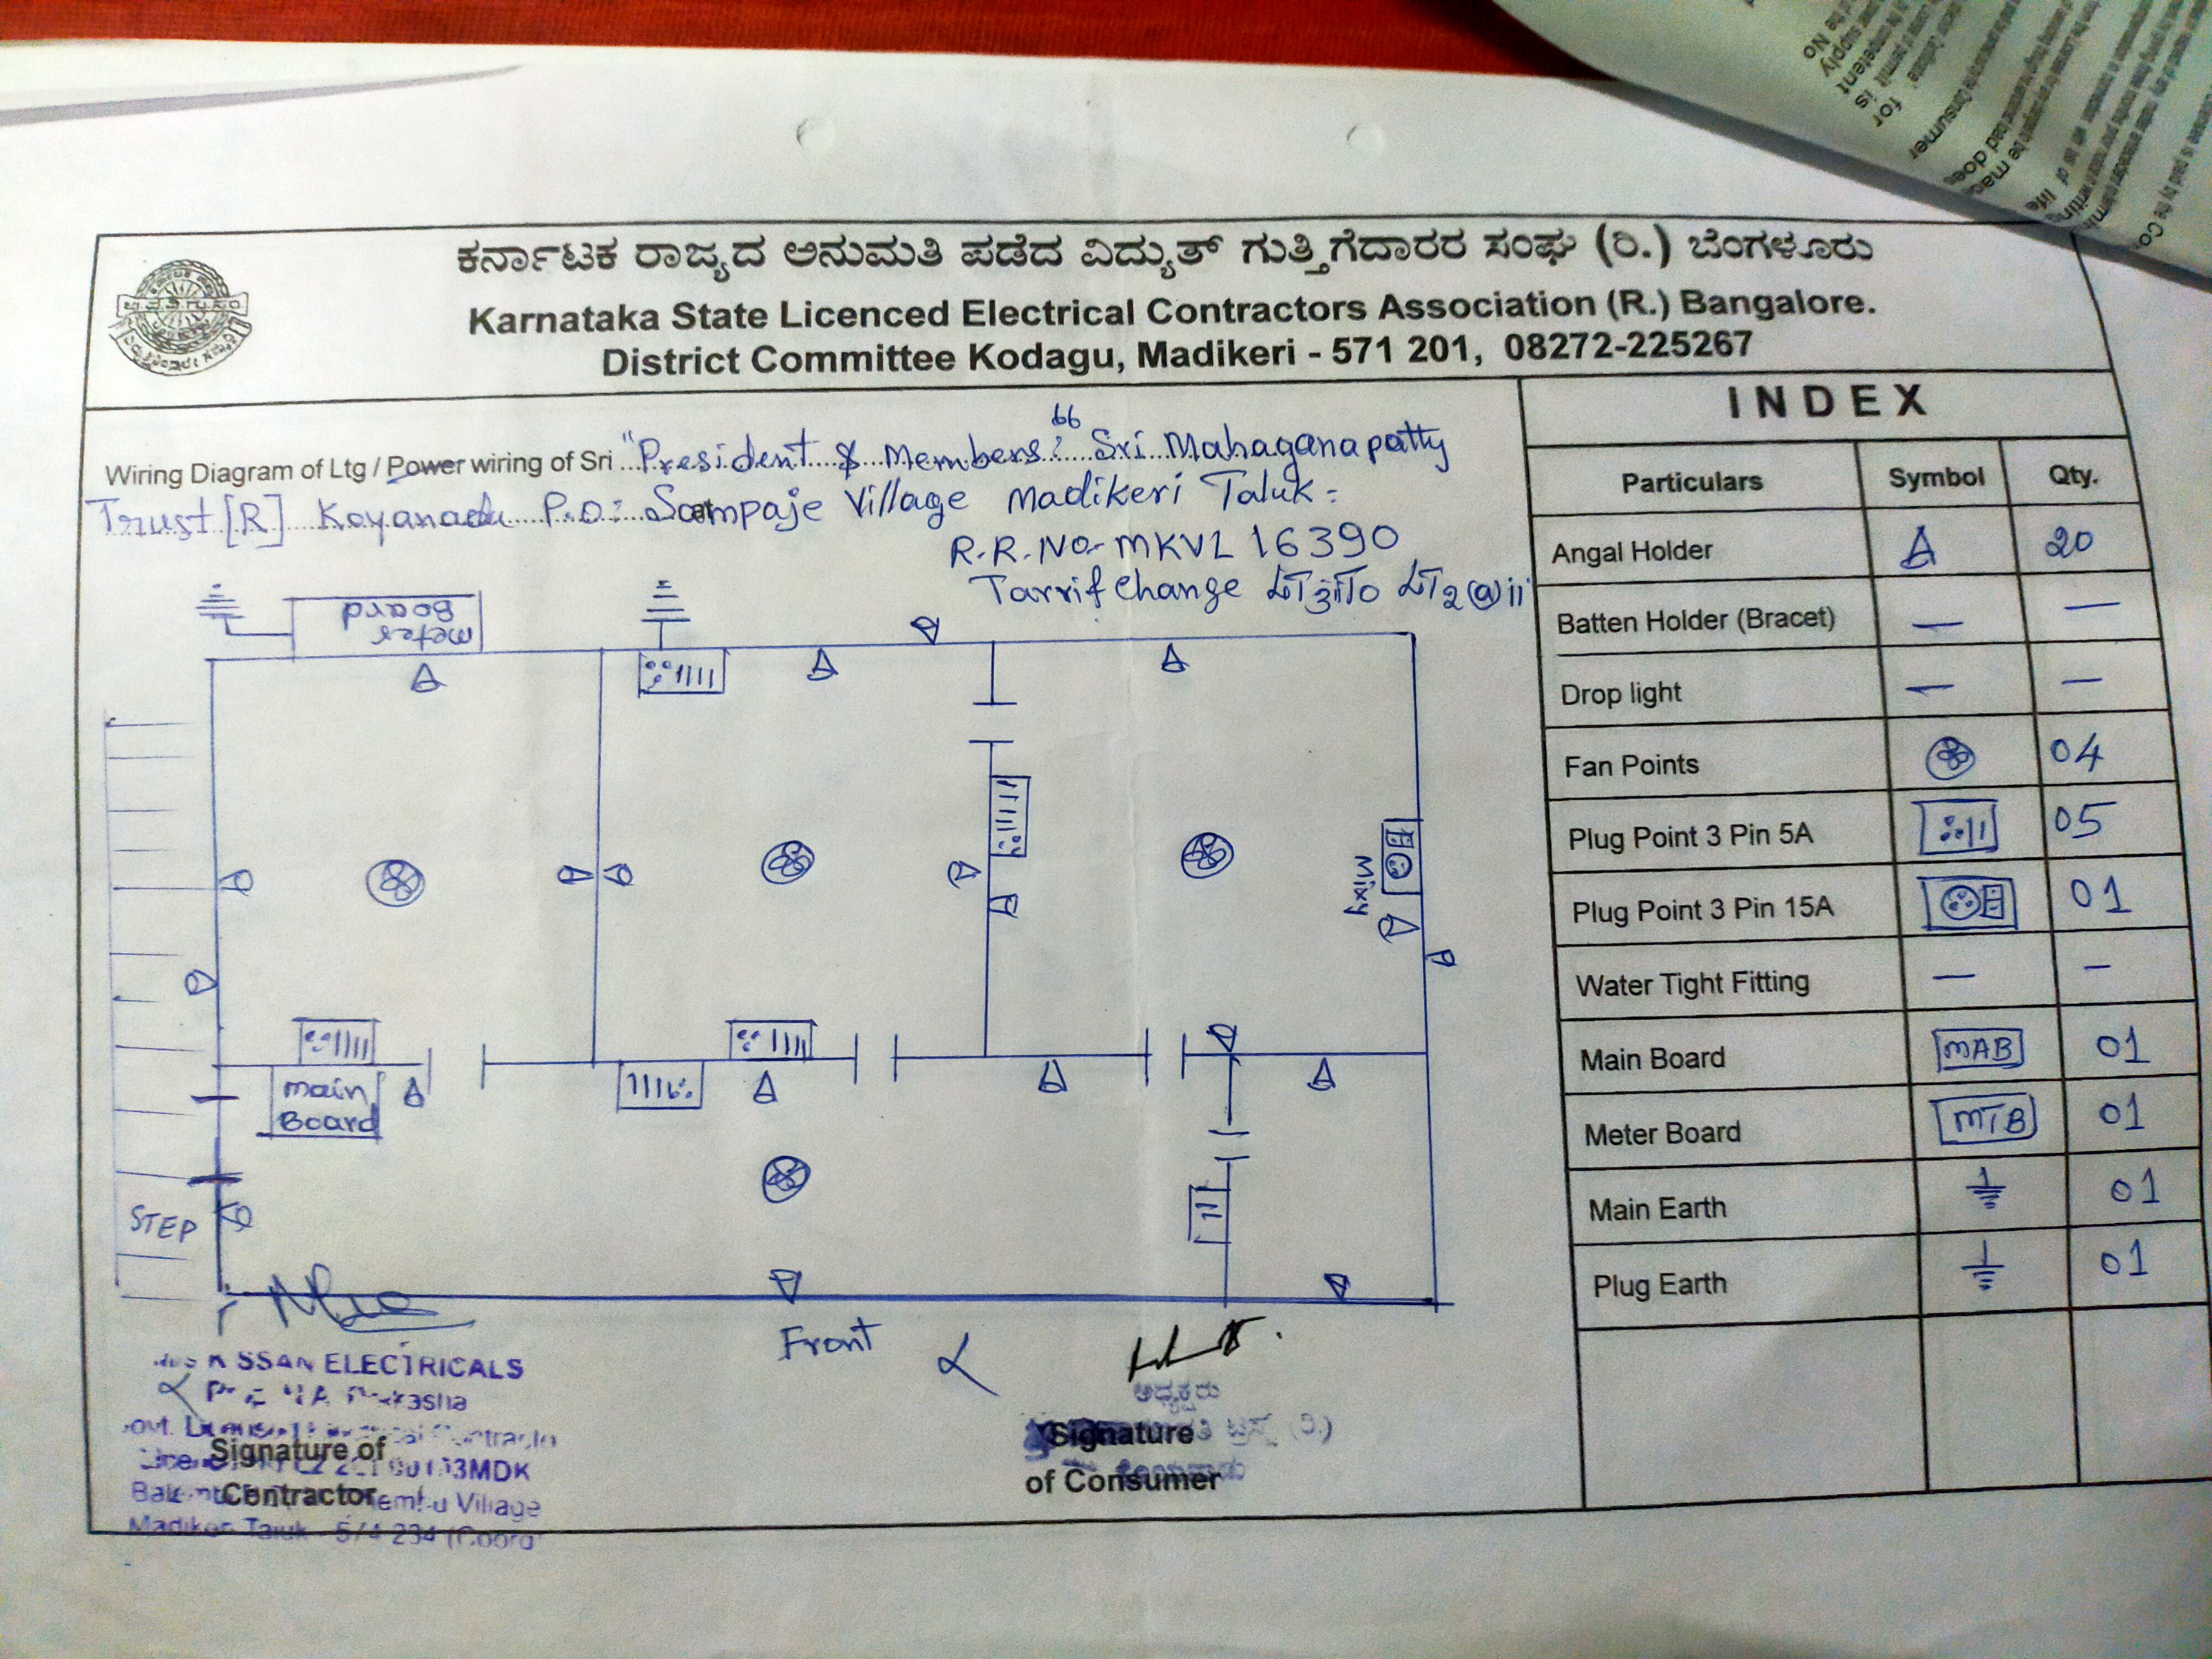 ಕರ್ನಾಟಕ ರಾಜ್ಯದ ಅನುಮತಿ ಪಡೆದ ವಿದ್ಯುತ್ ಗುತ್ತಿಗೆದಾರರ ಸಂಘ (ರಿ.) ಬೆಂಗಳೂರು
Karnataka State Licenced Electrical Contractors Association (R.) Bangalore.
District Committee Kodagu, Madikeri - 571 201, 08272-225267
Wiring Diagram of Ltg / Power wiring of Sri "President & Members" Sri Mahaganapatty
Trust [R] Koyanadu P.O: Sampaje Village Madikeri Taluk
R.R. No- MKVL 16390
Tarrif Change LT3iTo LT2(a)ii
meter
Board
Mixy
main
Board
STEP
Front
INDEX
Particulars Symbol Qty.
Angal Holder 20
Batten Holder (Bracet) — —
Drop light — —
Fan Points 04
Plug Point 3 Pin 5A 05
Plug Point 3 Pin 15A 01
Water Tight Fitting — –
Main Board MAB 01
Meter Board MTB 01
Main Earth 01
Plug Earth 01
SSAN ELECTRICALS
Signature of
Contractor
Village
Madikeri Taluk
ಅಧ್ಯಕ್ಷರು
ಟ್ರಸ್ಟ್ (ರಿ.)
Signature
of Consumer
for
tent is
supply
the No